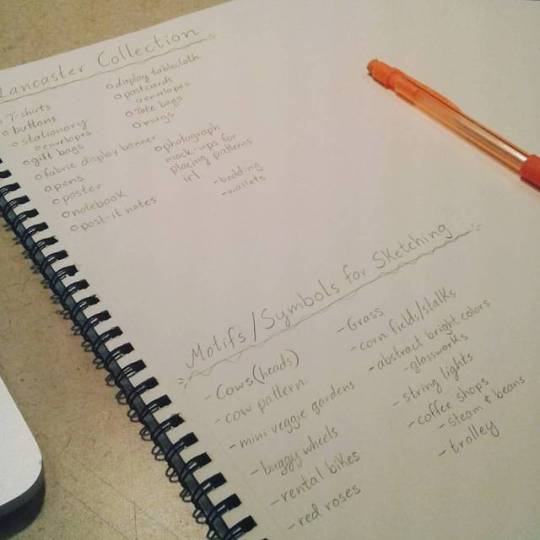 Lancaster Collection
o T-shirts
o buttons
o stationary
o envelopes
o gift bags
o fabric display banner
o pens
o poster
o notebook
o post-it notes
o display tablecloth
o postcards
o envelopes
o Tote bags
o mugs
o photograph
mock-ups for
placing patterns
irl
- bedding
- wallets
Motifs/Symbols for Sketching
- Cows (heads)
- cow pattern
- mini veggie gardens
- buggy wheels
- rental bikes
- red roses
- Grass
- corn fields/stalks
- abstract bright colors
- glassworks
- string lights
- coffee shops
- steam & beans
- trolley